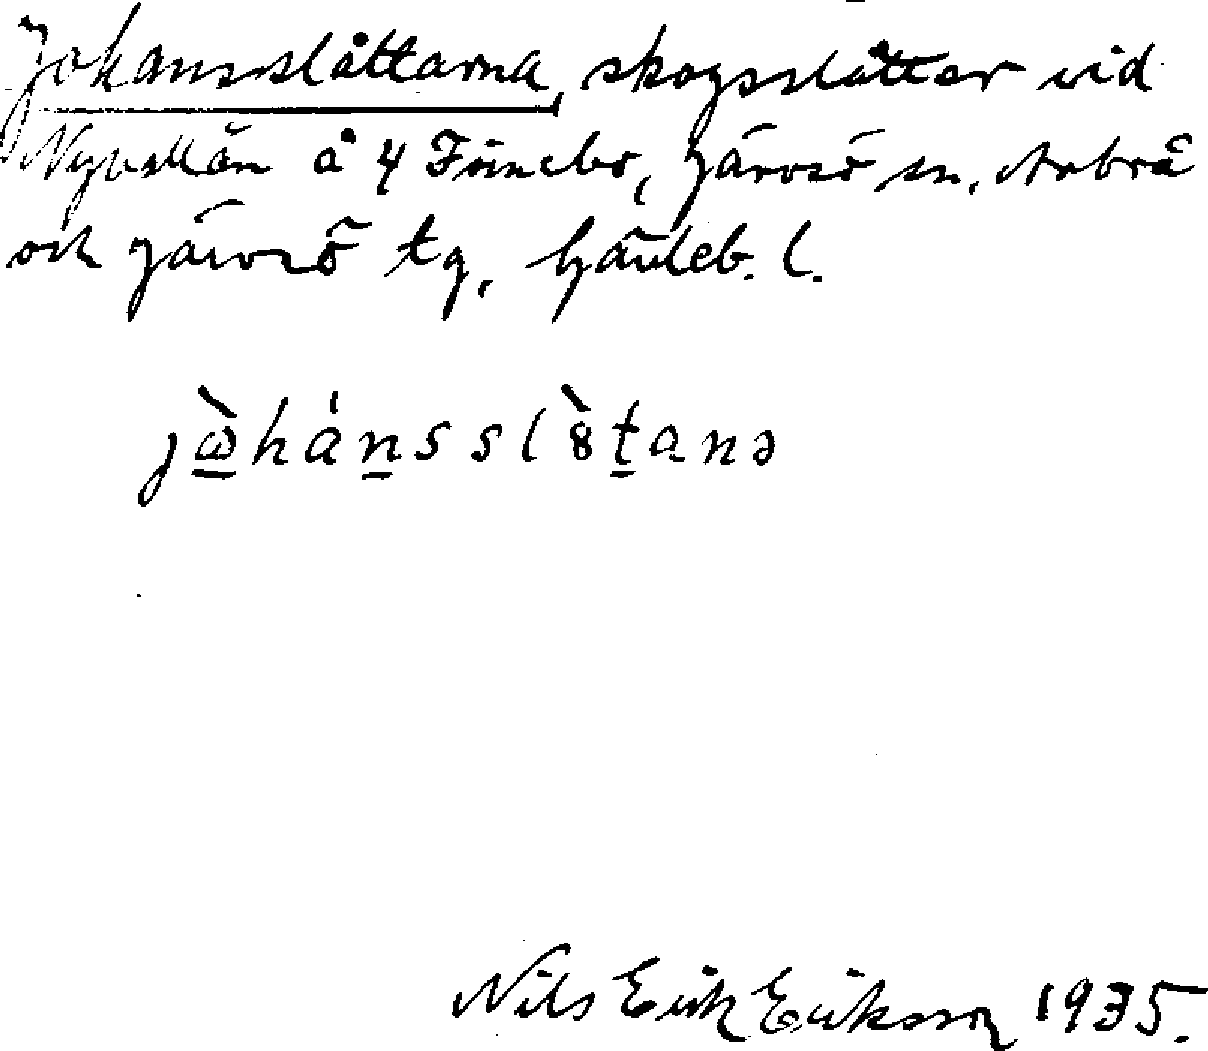 Johansslåttarna, skogsslåtter vid
Nyvallån å 4 Fönebo, Järvsö sn, Arbrå
och Järvsö tg, Gävleb. l.
jὼ̱hánsslòtanə
Nils Erik Eriksson 1935.